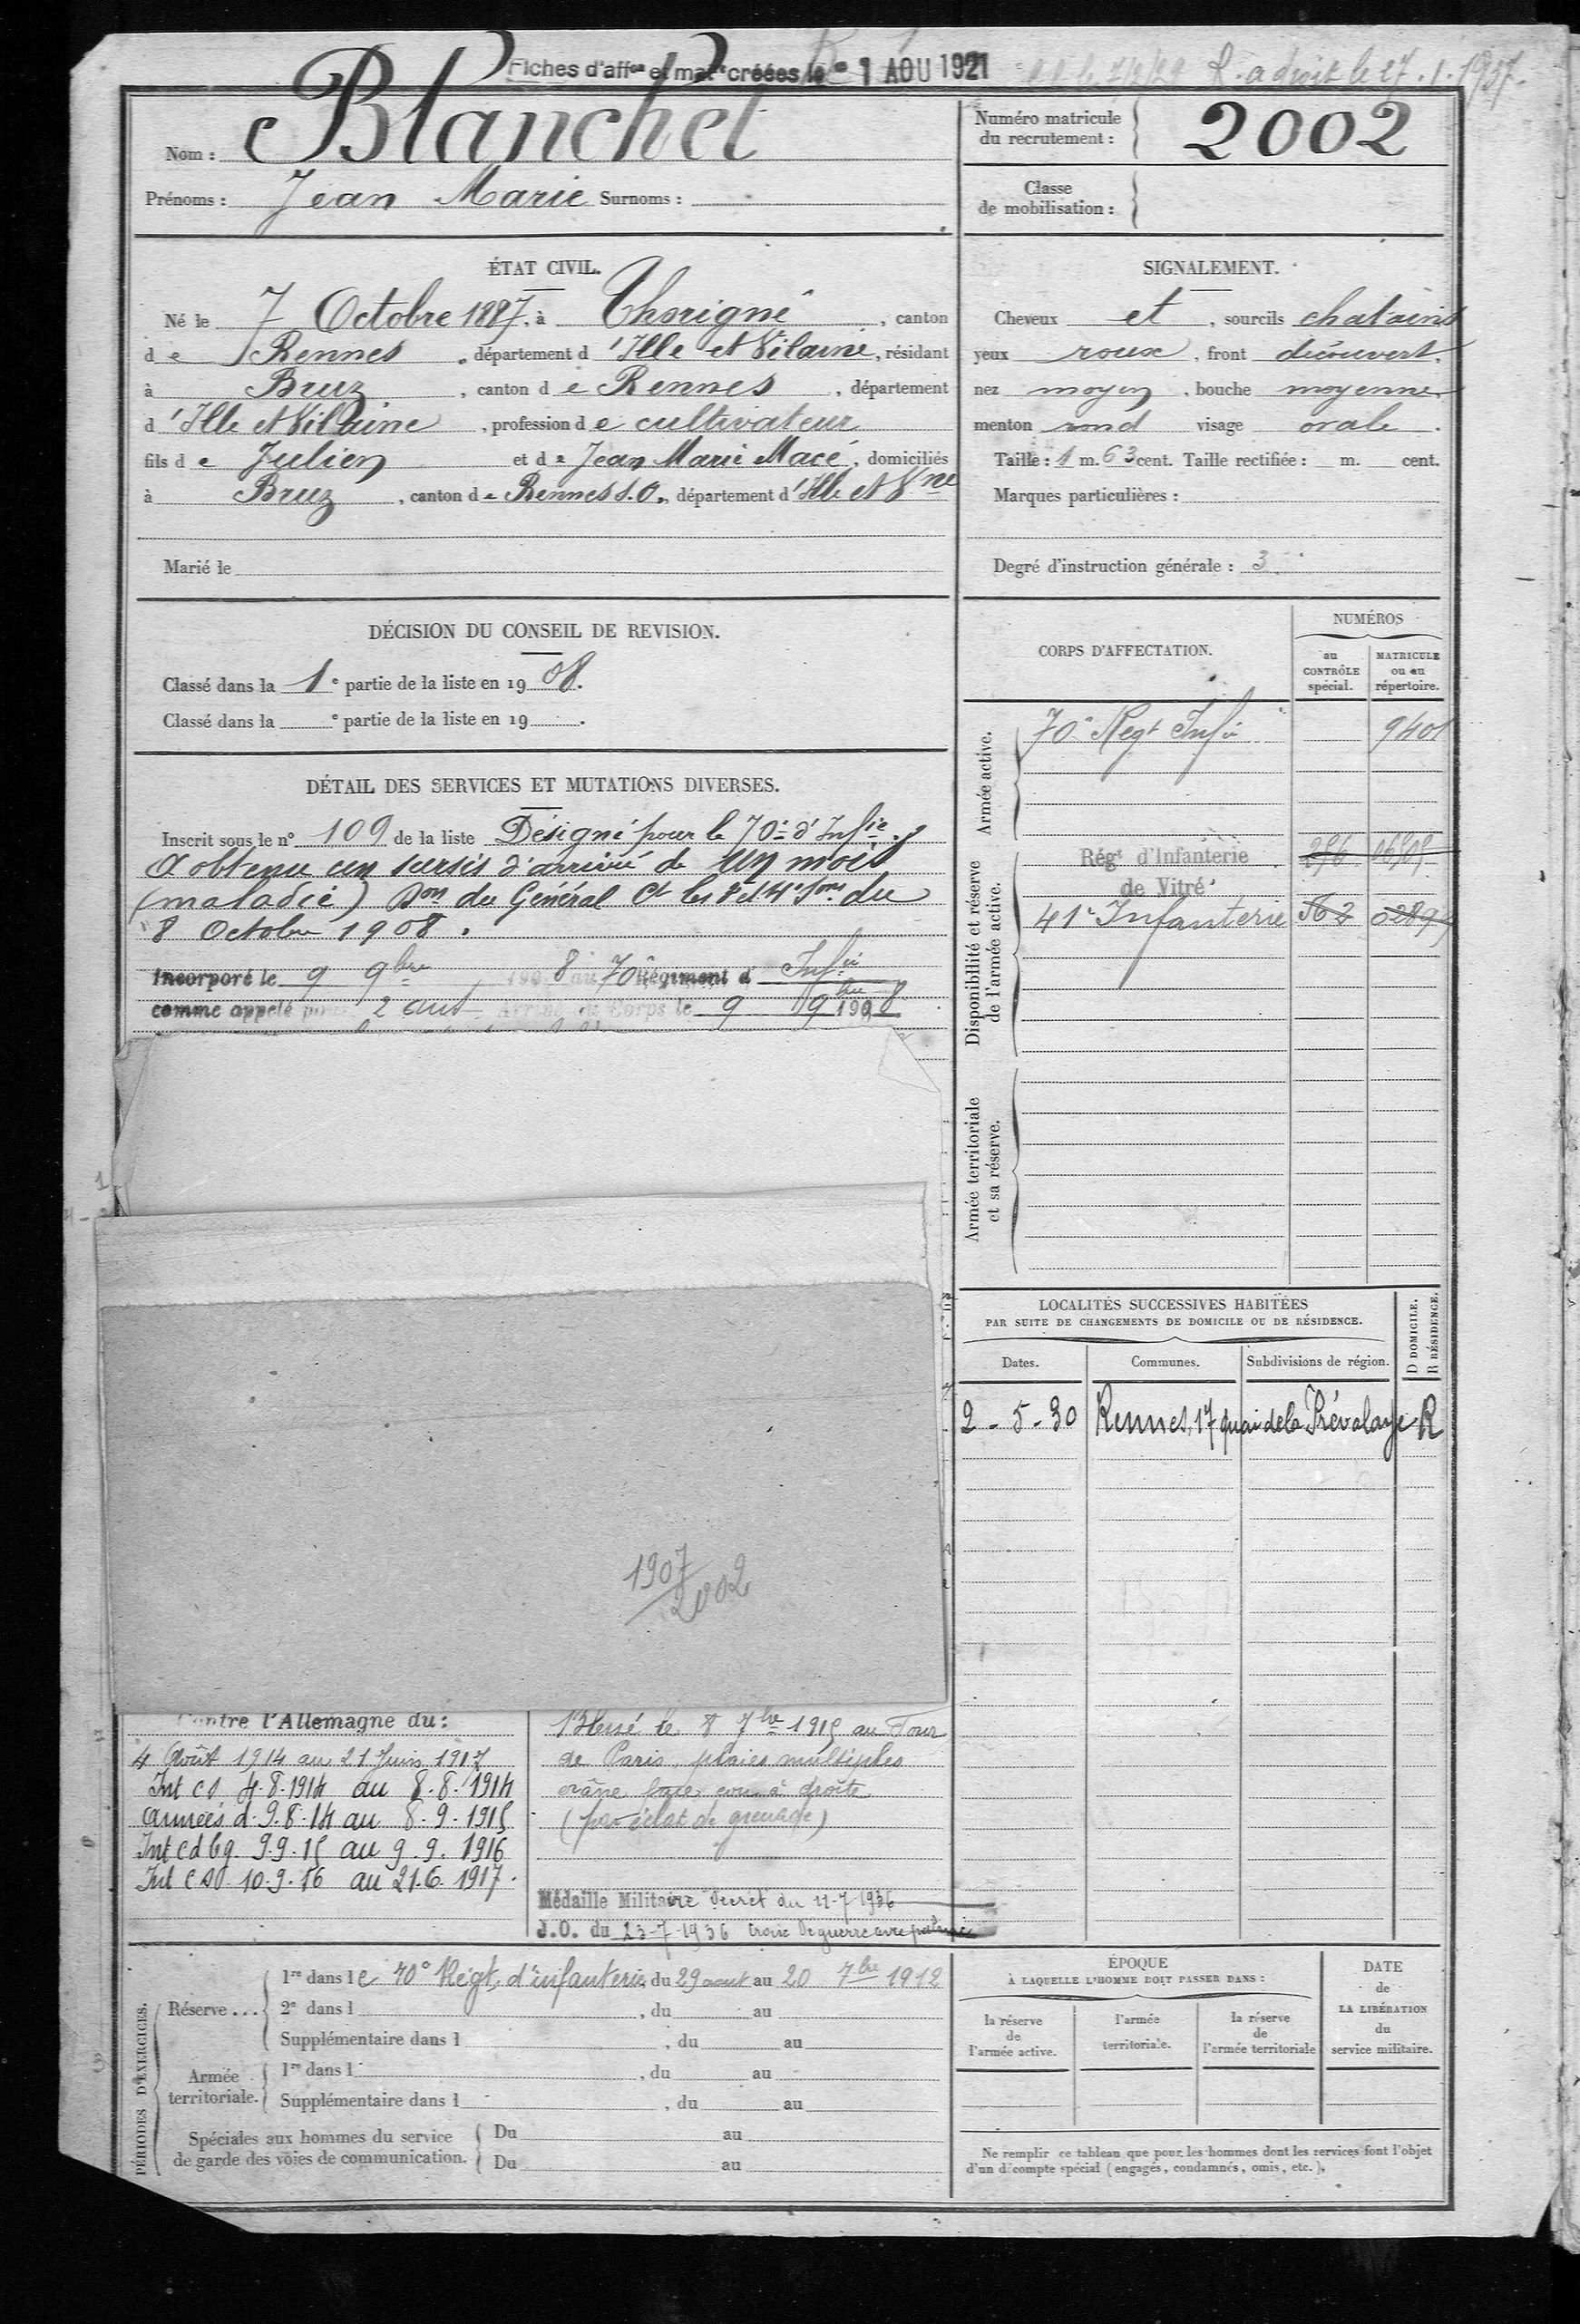 Fiches d'affon et matle créées le 1 AOU 1921
R. a droit le 27.1.1937.
Nom : Blanchet
Prénoms : Jean Marie Surnoms :
Numéro matricule du recrutement : 2002
Classe de mobilisation :
ÉTAT CIVIL.
Né le 7 Octobre 1887, à Thorigné, canton
de Rennes, département d'Ille et Vilaine, résidant
à Bruz, canton de Rennes, département
d'Ille et Vilaine, profession de cultivateur
fils de Julien et de Jean Marie Macé, domiciliés
à Bruz, canton de Rennes S.O., département d'Ille et Vne
Marié le
SIGNALEMENT.
Cheveux et, sourcils chatains
yeux roux, front découvert,
nez moyen, bouche moyenne
menton rond visage ovale.
Taille : 1 m. 63 cent. Taille rectifiée : m. cent.
Marques particulières :
Degré d'instruction générale : 3
DÉCISION DU CONSEIL DE REVISION.
Classé dans la 1e partie de la liste en 1908.
Classé dans la e partie de la liste en 19 .
DÉTAIL DES SERVICES ET MUTATIONS DIVERSES.
Inscrit sous le n° 109 de la liste Désigné pour le 70e d'Infie.
A obtenu un sursis d'arrivée de un mois
(maladie) Don du Général Ct les et 4e Sons du
8 Octobre 1908.
Incorporé le 9 9bre 1908 au 70 Régiment d' Infie
comme appelé pour 2 ans. Arrivé au Corps le 9 9bre 1908
CORPS D'AFFECTATION.
NUMÉROS
au CONTRÔLE spécial.
MATRICULE ou au répertoire.
Armée active.
70e Regt Infie 9401
Disponibilité et réserve de l'armée active.
Régt d'Infanterie
de Vitré
41e Infanterie
Armée territoriale et sa réserve.
LOCALITÉS SUCCESSIVES HABITÉES
PAR SUITE DE CHANGEMENTS DE DOMICILE OU DE RÉSIDENCE.
D DOMICILE. R RÉSIDENCE.
Dates. Communes. Subdivisions de région.
2-5-30 Rennes, 17 quai de la Prévalaye R
1907
2002
Contre l'Allemagne du :
4 Août 1914 au 21 Juin 1917
Int CD 4.8.1914 au 8.8.1914
armées d. 9.8.14 au 8.9.1915
Int cdbg 9.9.15 au 9.9.1916
Int CSD 10.9.16 au 21.6.1917.
Blessé le 8 7bre 1915 au Four
de Paris, plaies multiples
crâne face cou à droite
(par éclat de grenade)
Médaille Militaire Décret du 11-7-1936
J.O. du 23-7-1936 Croix de guerre avec palme
PÉRIODES D'EXERCICES.
Réserve...
1re dans le 70e Régt d'infanterie du 29 aout au 20 7bre 1912
2e dans l , du au
Supplémentaire dans l , du au
Armée territoriale.
1re dans l , du au
Supplémentaire dans l , du au
Spéciales aux hommes du service de garde des voies de communication.
Du au
Du au
ÉPOQUE
À LAQUELLE L'HOMME DOIT PASSER DANS :
la réserve de l'armée active.
l'armée territoriale.
la réserve de l'armée territoriale
DATE de LA LIBÉRATION du service militaire.
Ne remplir ce tableau que pour les hommes dont les services font l'objet
d'un décompte spécial (engagés, condamnés, omis, etc.).